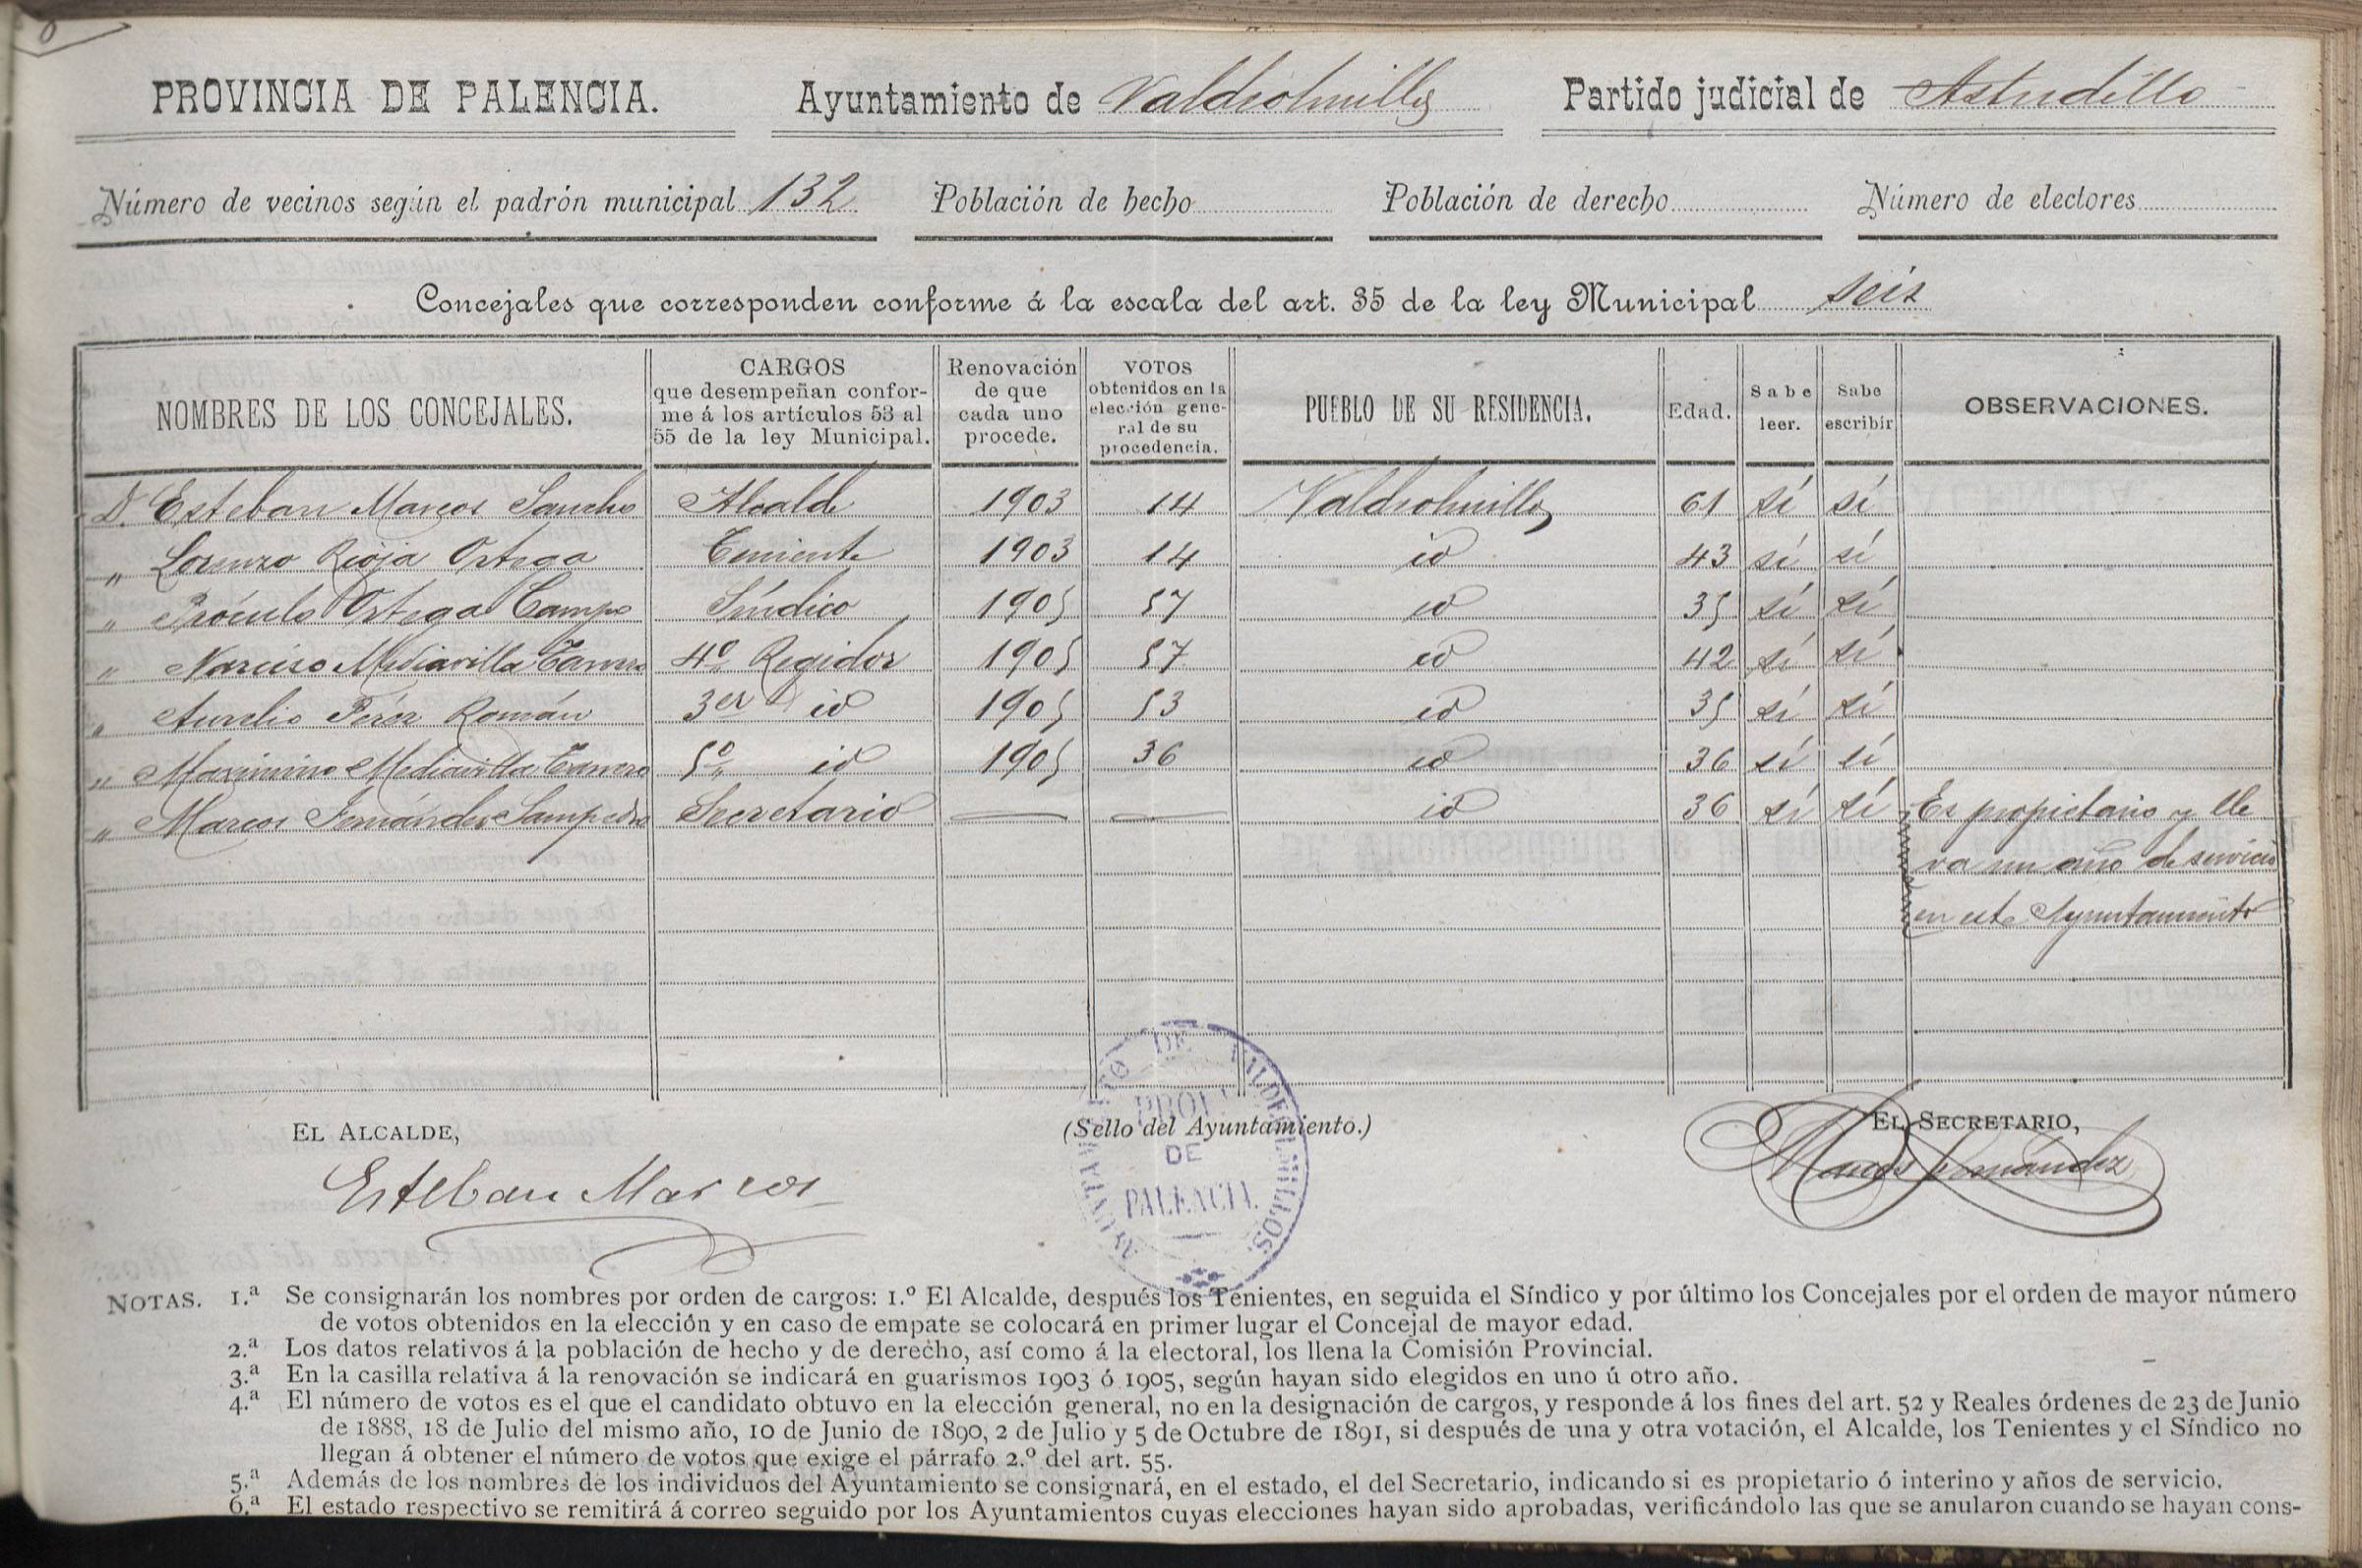 PROVINCIA DE PALENCIA. Ayuntamiento de Valdeolmillos Partido judicial de Astudillo
Número de vecinos según el padrón municipal 132 Población de hecho Población de derecho Número de electores
Concejales que corresponden conforme á la escala del art. 35 de la ley Municipal seis
NOMBRES DE LOS CONCEJALES. CARGOS que desempeñan confor-me á los artículos 53 al 55 de la ley Municipal. Renovación de que cada uno procede. VOTOS obtenidos en la elección gene-ral de su procedencia. PUEBLO DE SU RESIDENCIA. Edad. Sabe leer. Sabe escribir OBSERVACIONES.
D. Esteban Marcos Sancho Alcalde 1903 14 Valdeolmillos 61 sí sí
" Lorenzo Rioja Ortega Teniente 1903 14 id 43 sí sí
" Próculo Ortega Campo Síndico 1905 57 id 35 sí sí
" Narciso Mediavilla 4º Regidor 1905 57 id 42 sí sí
" Aurelio Pérez Román 3er id 1905 53 id 35 sí sí
" Maximino Mediavilla 5º id 1905 36 id 36 sí sí
" Marcos Fernández Sampedro Secretario — — id 36 sí sí Es propietario y lle
va un año de servicio
en este Ayuntamiento
EL ALCALDE, (Sello del Ayuntamiento.) EL SECRETARIO,
Esteban Marcos Marcos Fernández
AYUNTAMIENTO DE VALDEOLMILLOS.
PROV.
DE
PALENCIA.
NOTAS. 1.ª Se consignarán los nombres por orden de cargos: 1.º El Alcalde, después los Tenientes, en seguida el Síndico y por último los Concejales por el orden de mayor número
de votos obtenidos en la elección y en caso de empate se colocará en primer lugar el Concejal de mayor edad.
2.ª Los datos relativos á la población de hecho y de derecho, así como á la electoral, los llena la Comisión Provincial.
3.ª En la casilla relativa á la renovación se indicará en guarismos 1903 ó 1905, según hayan sido elegidos en uno ú otro año.
4.ª El número de votos es el que el candidato obtuvo en la elección general, no en la designación de cargos, y responde á los fines del art. 52 y Reales órdenes de 23 de Junio
de 1888, 18 de Julio del mismo año, 10 de Junio de 1890, 2 de Julio y 5 de Octubre de 1891, si después de una y otra votación, el Alcalde, los Tenientes y el Síndico no
llegan á obtener el número de votos que exige el párrafo 2.º del art. 55.
5.ª Además de los nombres de los individuos del Ayuntamiento se consignará, en el estado, el del Secretario, indicando si es propietario ó interino y años de servicio.
6.ª El estado respectivo se remitirá á correo seguido por los Ayuntamientos cuyas elecciones hayan sido aprobadas, verificándolo las que se anularon cuando se hayan cons-